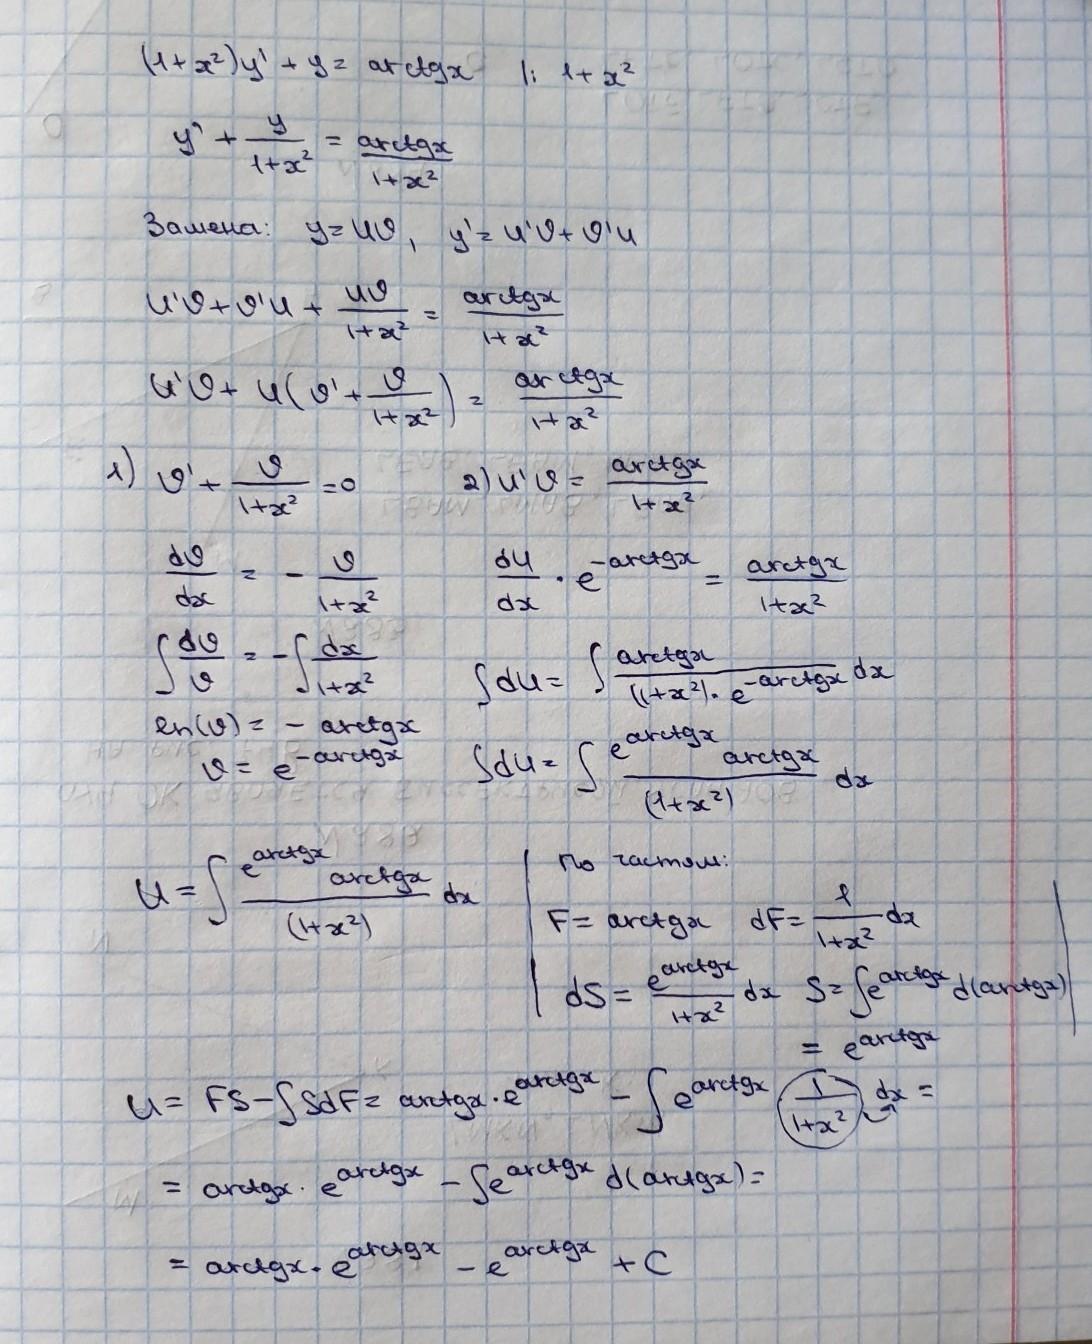 (1+x²)y' + y = arctgx |: 1+x²
y' + y/(1+x²) = arctgx/(1+x²)
Замена: y=uϑ, y'= u'ϑ+ϑ'u
u'ϑ+ϑ'u + uϑ/(1+x²) = arctgx/(1+x²)
u'ϑ+ u(ϑ'+ ϑ/(1+x²)) = arctgx/(1+x²)
1) ϑ'+ ϑ/(1+x²) =0 2) u'ϑ = arctgx/(1+x²)
dϑ/dx = - ϑ/(1+x²) du/dx · e^(-arctgx) = arctgx/(1+x²)
∫dϑ/ϑ = -∫dx/(1+x²) ∫du= ∫ arctgx/((1+x²)·e^(-arctgx)) dx
ln(ϑ) = - arctgx
ϑ= e^(-arctgx) ∫du= ∫ e^(arctgx) arctgx/(1+x²) dx
u = ∫ e^(arctgx) arctgx/(1+x²) dx
По частям:
F= arctgx dF= 1/(1+x²) dx
dS = e^(arctgx)/(1+x²) dx S= ∫e^(arctgx) d(arctgx)
= e^(arctgx)
u= FS-∫SdF= arctgx·e^(arctgx) - ∫ e^(arctgx) 1/(1+x²) dx =
= arctgx· e^(arctgx) - ∫e^(arctgx) d(arctgx)=
= arctgx· e^(arctgx) - e^(arctgx) + C